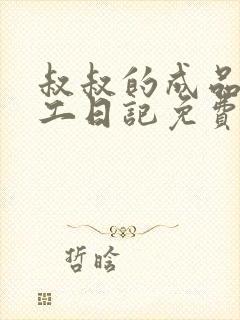 叔叔的成品
工日記免費
哲晗